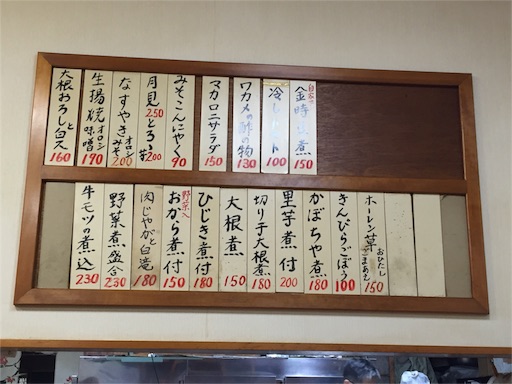 大根おろしと白ス
160
生揚焼 オロシ 味噌
190
なすやき オロシ みそ
200
月見 250
とろろ芋 200
みそこんにゃく
90
マカロニサラダ
150
ワカメの酢の物
130
冷しトマト
100
金時豆煮
150
牛モツの煮込
230
野菜煮盛合
230
肉じゃがと白滝
180
野菜入
おから煮付
150
ひじき煮付
180
大根煮
150
切り干大根煮
180
里芋煮付
200
かぼちゃ煮
180
きんぴらごぼう
100
ホーレン草 おひたし ごまあえ
150